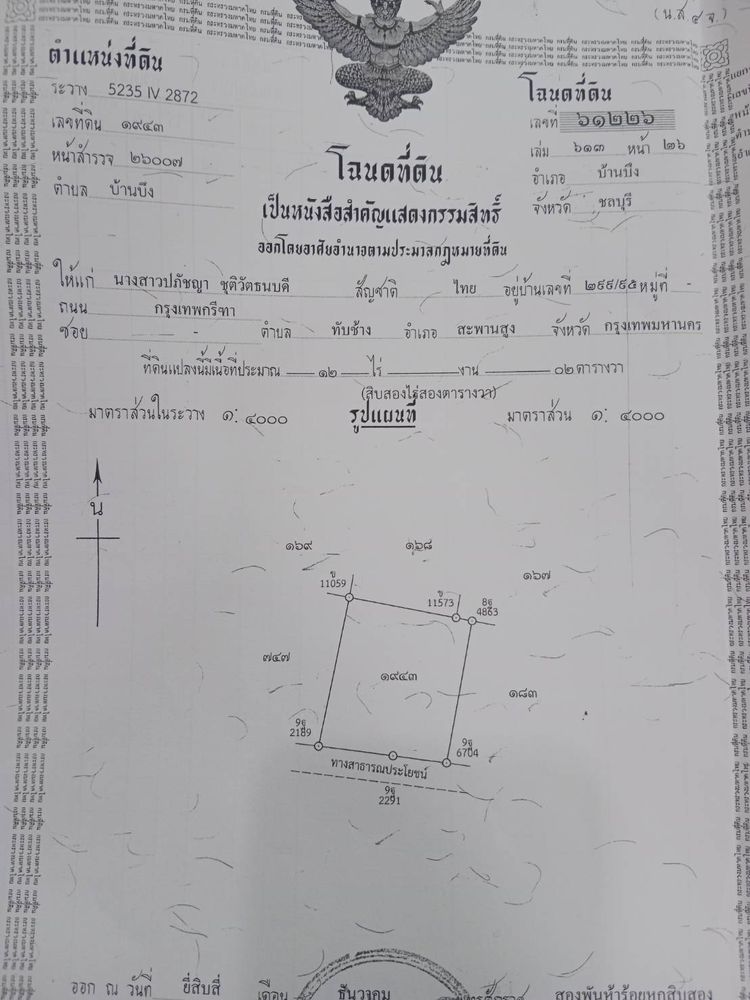 (น.ส.๔ จ.)
ตำแหน่งที่ดิน
ระวาง 5235 IV 2872
เลขที่ดิน ๑๙๔๓
หน้าสำรวจ ๒๖๐๐๗
ตำบล บ้านบึง
โฉนดที่ดิน
เลขที่ ๖๑๒๒๖
เล่ม ๖๑๓ หน้า ๒๖
อำเภอ บ้านบึง
จังหวัด ชลบุรี
โฉนดที่ดิน
เป็นหนังสือสำคัญแสดงกรรมสิทธิ์
ออกโดยอาศัยอำนาจตามประมวลกฎหมายที่ดิน
ให้แก่ นางสาวปภัชญา ชุติวัตธนบดี สัญชาติ ไทย อยู่บ้านเลขที่ ๒๙๙/๙๕ หมู่ที่ -
ถนน กรุงเทพกรีฑา
ซอย - ตำบล ทับช้าง อำเภอ สะพานสูง จังหวัด กรุงเทพมหานคร
ที่ดินแปลงนี้มีเนื้อที่ประมาณ ๑๒ ไร่ งาน ๐๒ ตารางวา
(สิบสองไร่สองตารางวา)
มาตราส่วนในระวาง ๑: ๔๐๐๐ รูปแผนที่ มาตราส่วน ๑: ๔๐๐๐
น
๑๖๙ ๑๖๘ ๑๖๗
ข
11059
ข
11573
8ฐ
4863
๗๔๗ ๑๙๔๓ ๑๘๓
9ฐ
2189
9ฐ
6704
ทางสาธารณประโยชน์
9ฐ
2291
ออก ณ วันที่ ยี่สิบสี่ เดือน ธันวาคม สองพันห้าร้อยหกสิบสอง